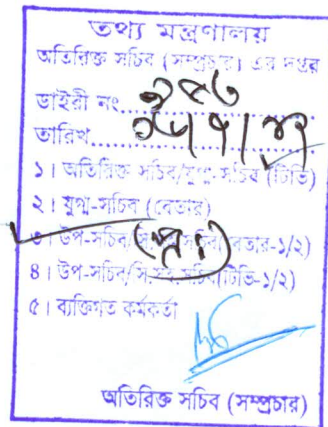 তথ্য মন্ত্রণালয়
অতিরিক্ত সচিব (সম্প্রচার) এর দপ্তর
ডাইরী নং
তারিখ
১। অতিরিক্ত সচিব/যুগ্ম-সচিব (টিভি)
২। যুগ্ম-সচিব (বেতার)
৩। উপ-সচিব/সি.সহ.সচিব(বেতার-১/২)
৪। উপ-সচিব/সি.সহ.সচিব(টিভি-১/২)
৫। ব্যক্তিগত কর্মকর্তা
অতিরিক্ত সচিব (সম্প্রচার)